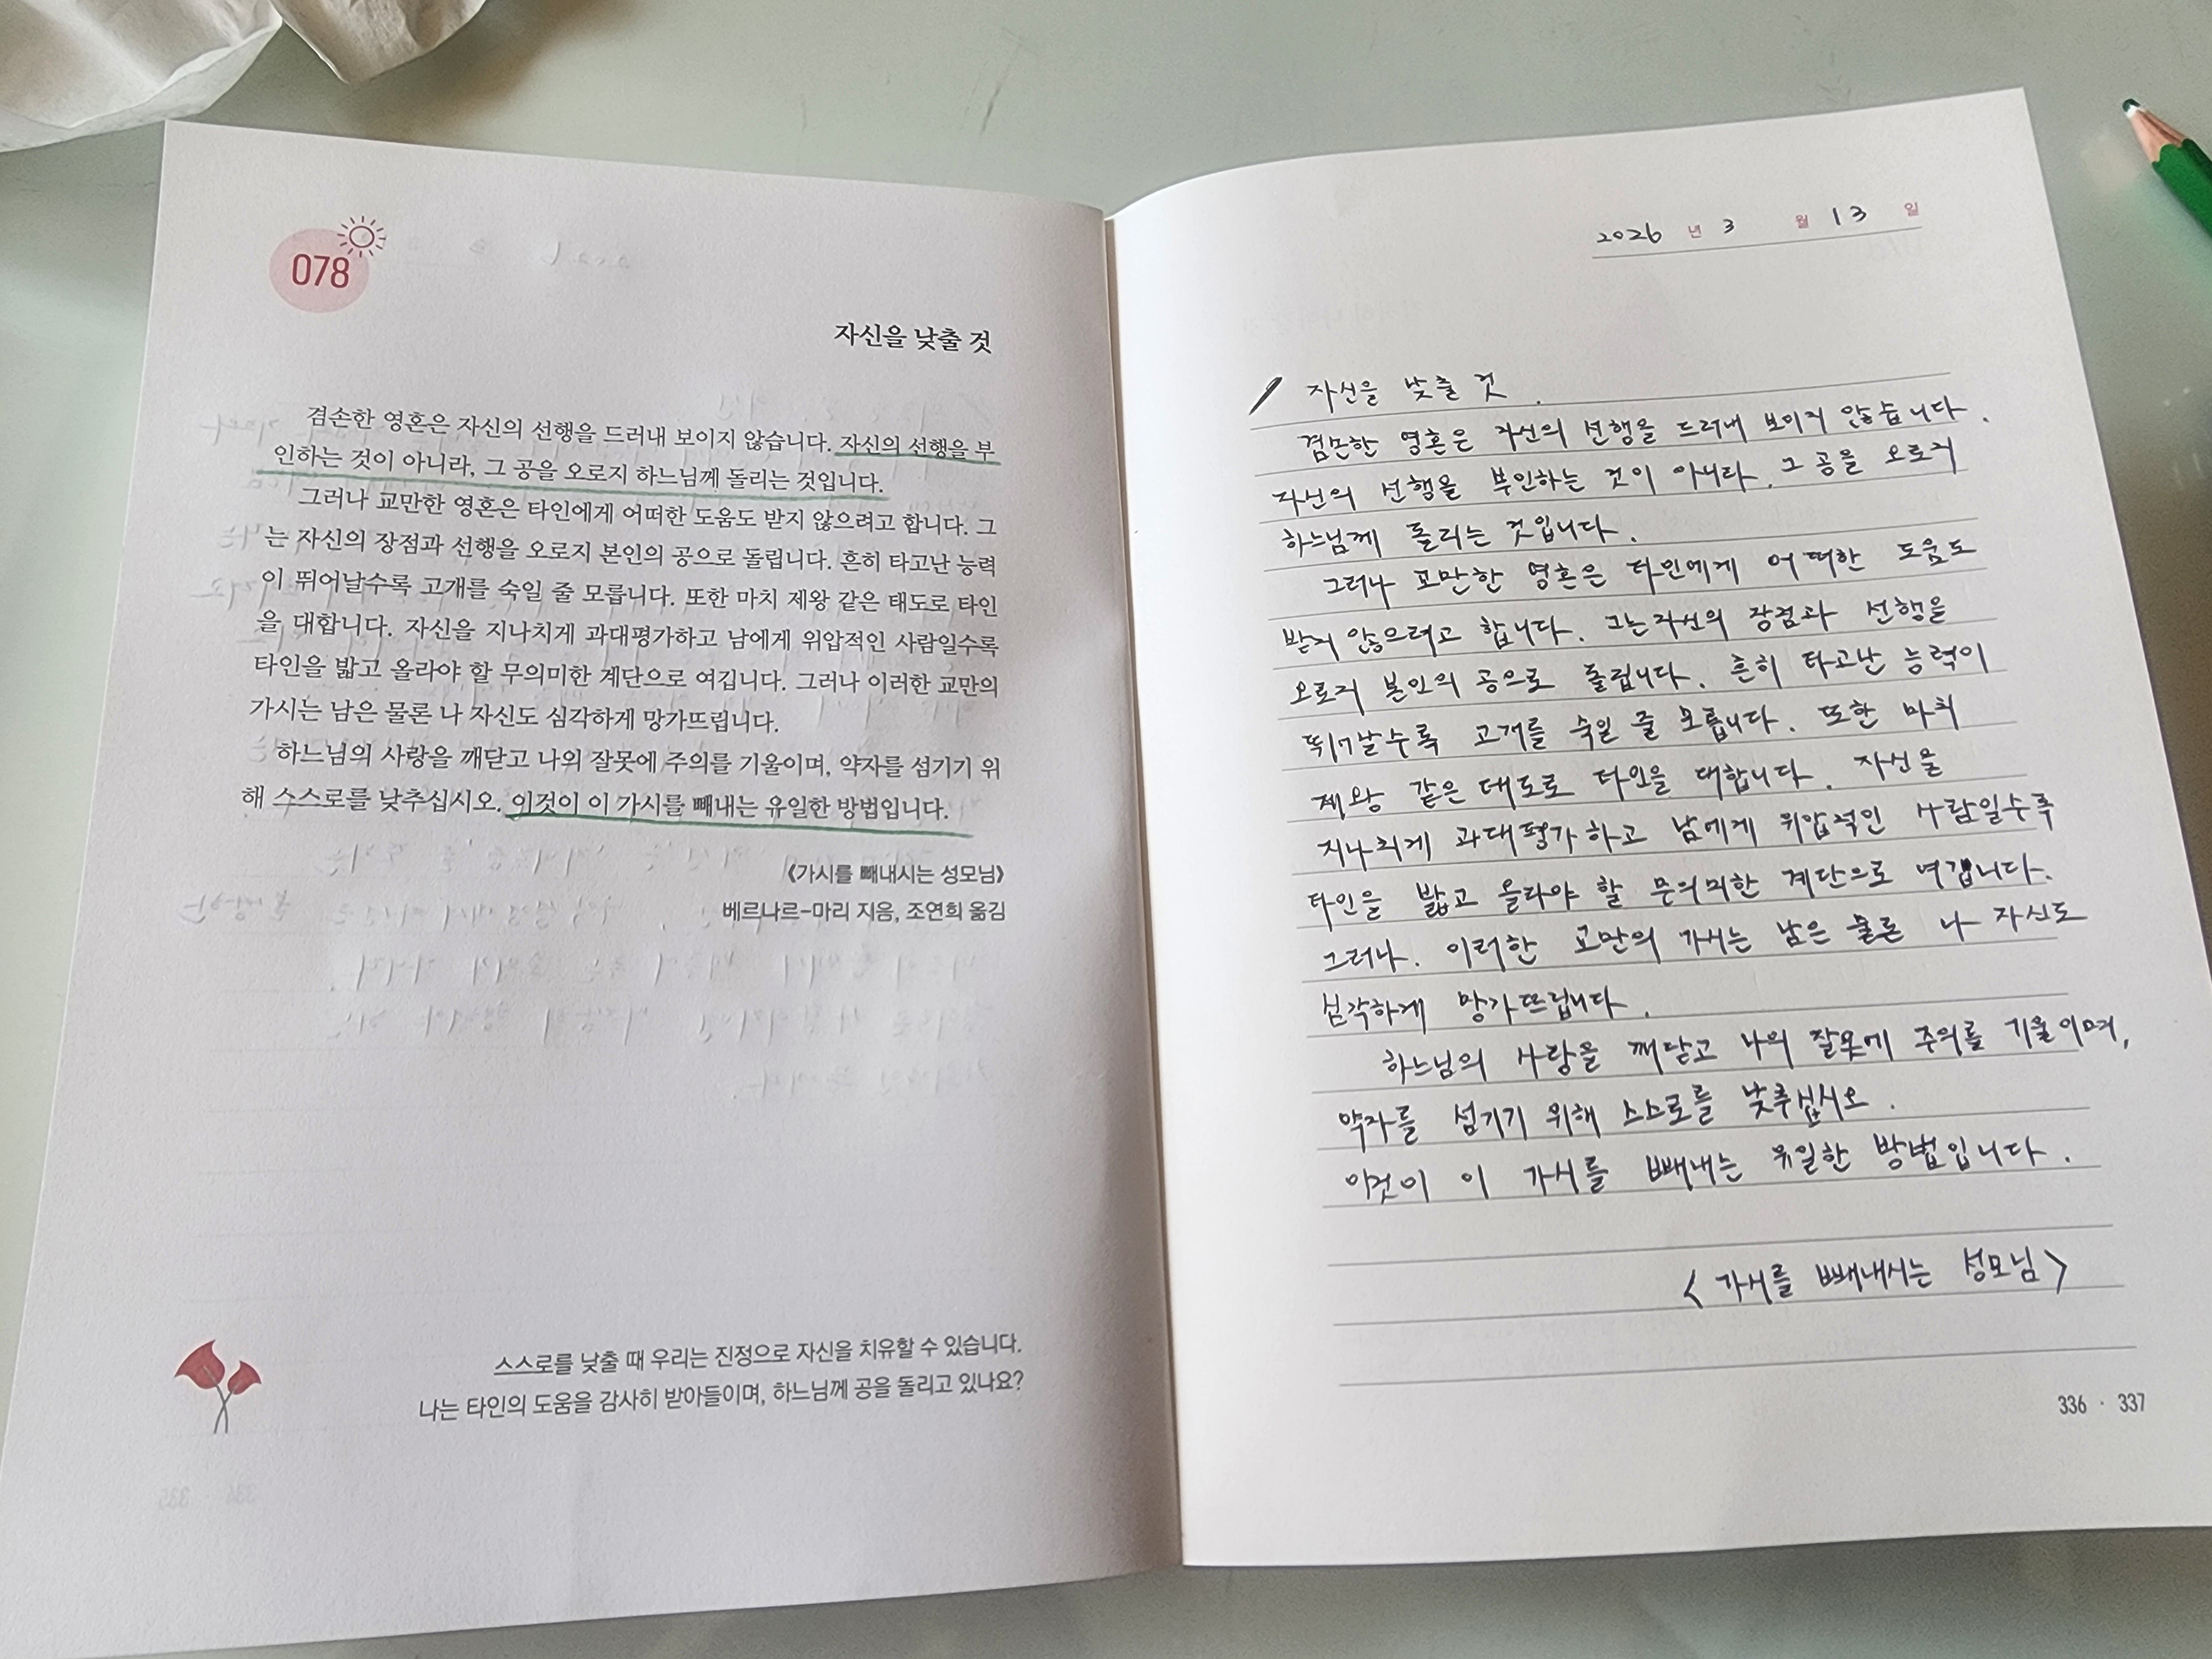 078
자신을 낮출 것
겸손한 영혼은 자신의 선행을 드러내 보이지 않습니다. 자신의 선행을 부
인하는 것이 아니라, 그 공을 오로지 하느님께 돌리는 것입니다.
그러나 교만한 영혼은 타인에게 어떠한 도움도 받지 않으려고 합니다. 그
는 자신의 장점과 선행을 오로지 본인의 공으로 돌립니다. 흔히 타고난 능력
이 뛰어날수록 고개를 숙일 줄 모릅니다. 또한 마치 제왕 같은 태도로 타인
을 대합니다. 자신을 지나치게 과대평가하고 남에게 위압적인 사람일수록
타인을 밟고 올라야 할 무의미한 계단으로 여깁니다. 그러나 이러한 교만의
가시는 남은 물론 나 자신도 심각하게 망가뜨립니다.
하느님의 사랑을 깨닫고 나의 잘못에 주의를 기울이며, 약자를 섬기기 위
해 스스로를 낮추십시오. 이것이 이 가시를 빼내는 유일한 방법입니다.
《가시를 빼내시는 성모님》
베르나르-마리 지음, 조연희 옮김
스스로를 낮출 때 우리는 진정으로 자신을 치유할 수 있습니다.
나는 타인의 도움을 감사히 받아들이며, 하느님께 공을 돌리고 있나요?
2026 년 3 월 13 일
자신을 낮출 것.
겸손한 영혼은 자신의 선행을 드러내 보이지 않습니다.
자신의 선행을 부인하는 것이 아니라, 그 공을 오로지
하느님께 돌리는 것입니다.
그러나 교만한 영혼은 타인에게 어떠한 도움도
받지 않으려고 합니다. 그는 자신의 장점과 선행을
오로지 본인의 공으로 돌립니다. 흔히 타고난 능력이
뛰어날수록 고개를 숙일 줄 모릅니다. 또한 마치
제왕 같은 태도로 타인을 대합니다. 자신을
지나치게 과대평가하고 남에게 위압적인 사람일수록
타인을 밟고 올라야 할 무의미한 계단으로 여깁니다.
그러나. 이러한 교만의 가시는 남은 물론 나 자신도
심각하게 망가뜨립니다.
하느님의 사랑을 깨닫고 나의 잘못에 주의를 기울이며,
약자를 섬기기 위해 스스로를 낮추십시오.
이것이 이 가시를 빼내는 유일한 방법입니다.
<가시를 빼내시는 성모님>
336 · 337